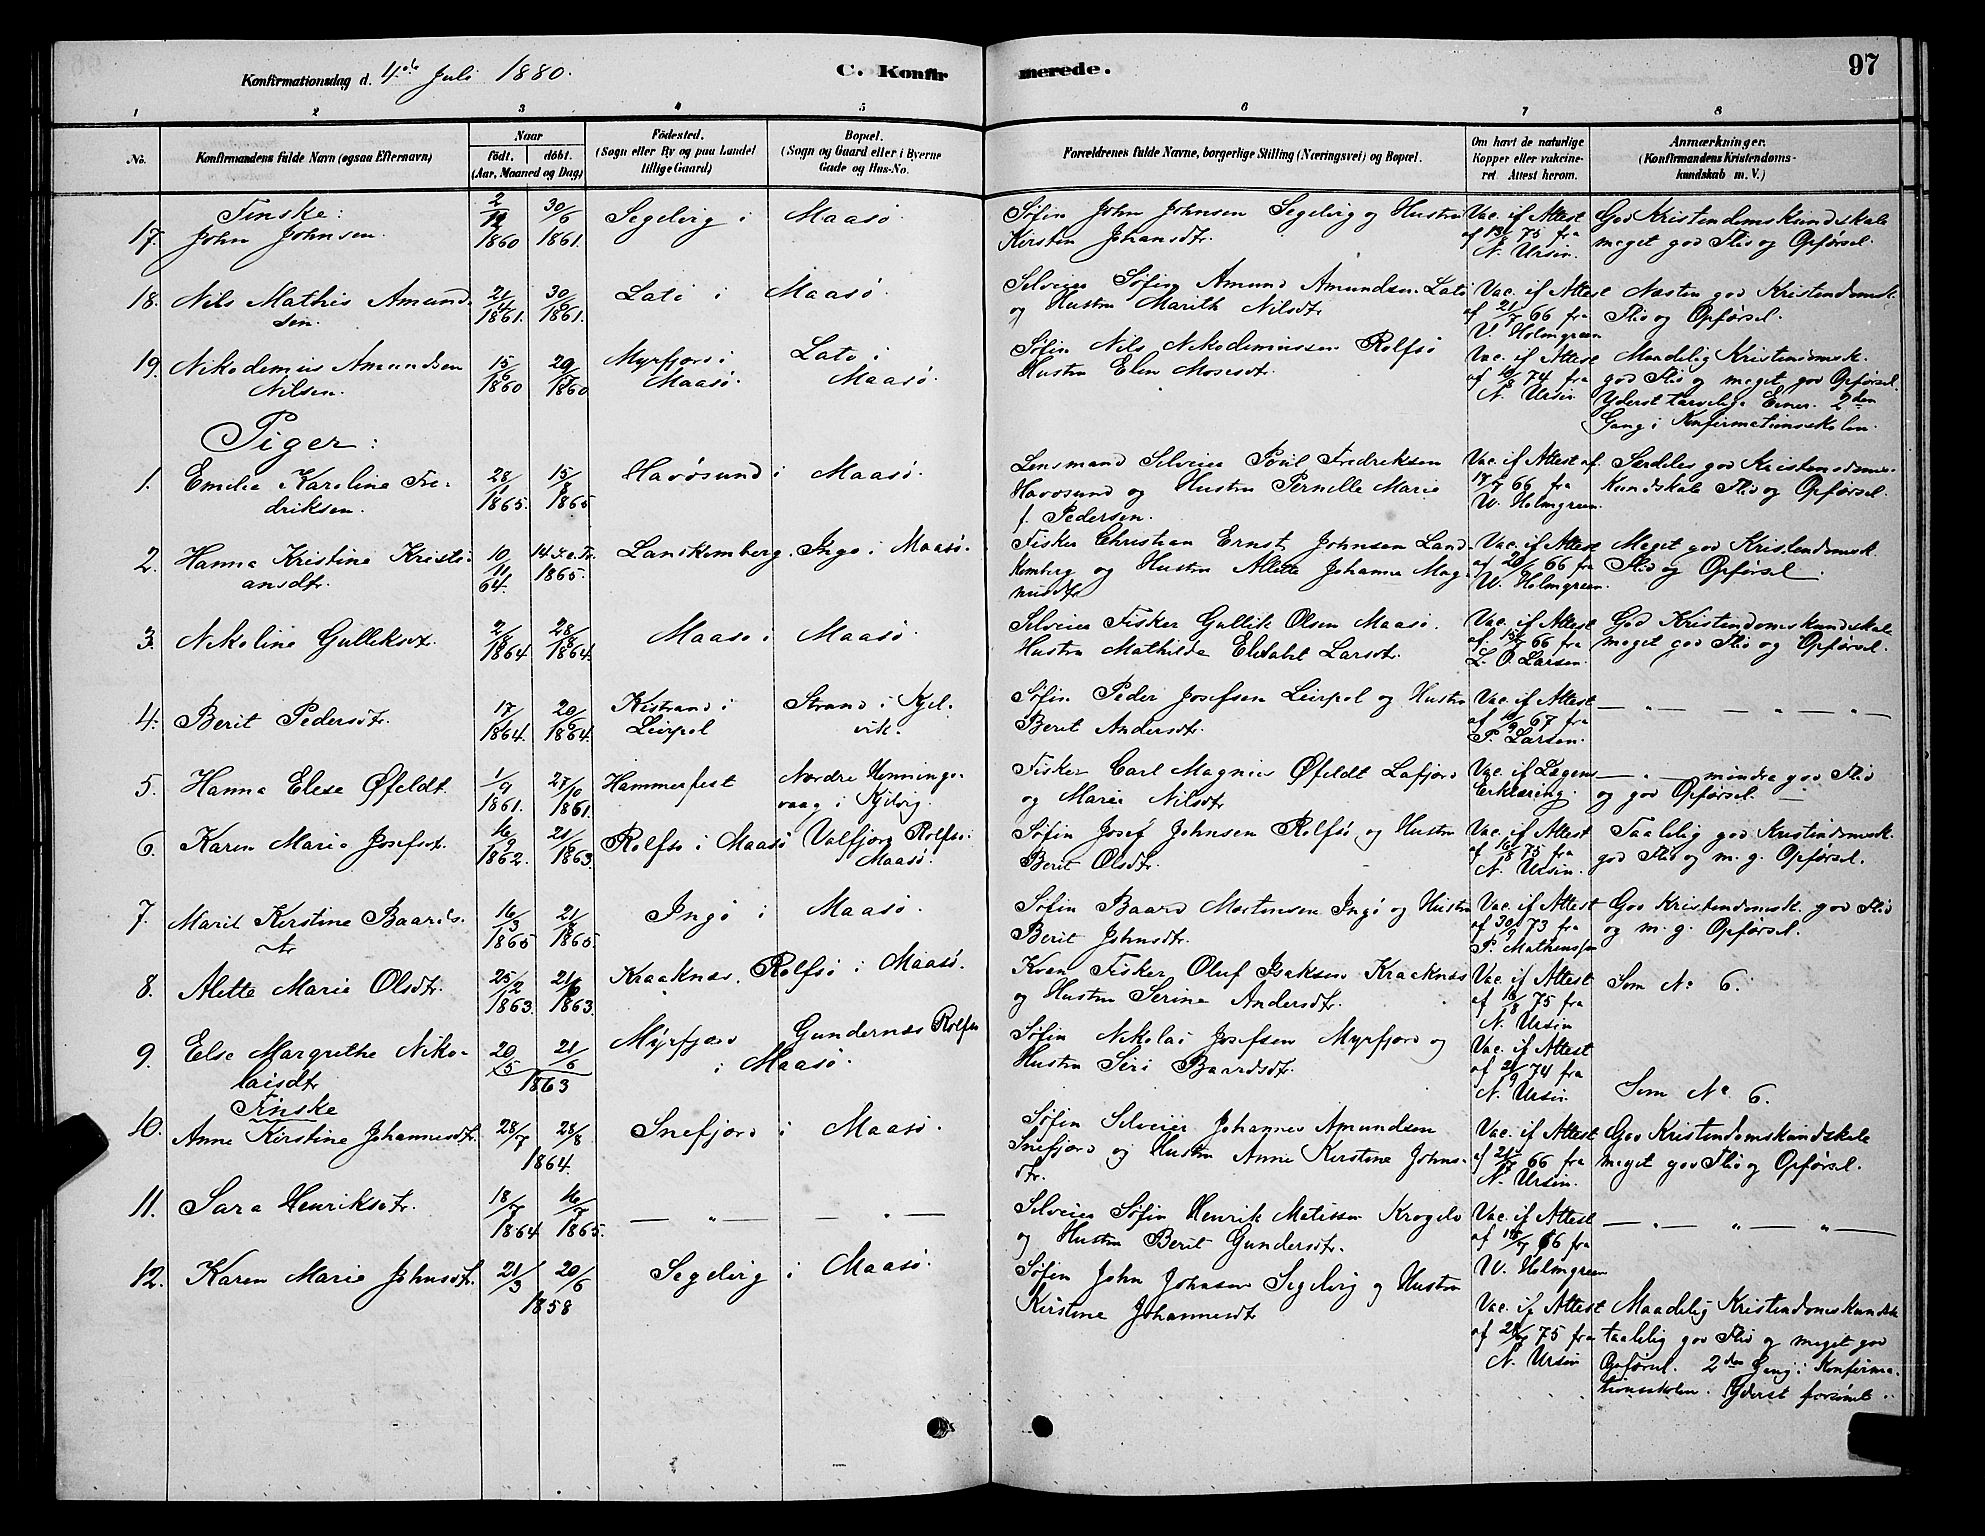 Konfirmationsdag d. 4de Juli 1880. C. Konfirmerede. 97
1 2 3 4 5 6 7 8
No. Konfirmandens fulde Navn (ogsaa Efternavn) Naar födt. döbt. (Aar, Maaned og Dag) Födested. (Sogn eller By og paa Landet tillige Gaard) Bopæl. (Sogn og Gaard eller i Byerne Gade og Hus-No.
Forældrenes fulde Navne, borgerlige Stilling (Næringsvei) og Bopæl. Om havt de naturlige Kopper eller vakcineret. Attest herom. Anmærkninger. (Konfirmandens Kristendomskundskab m. V.)
Finske:
17. John Johnsen. 2/12 1860 30/6 1861. Segelvig i Maasø.
Søfin John Johnsen Segelvig og Hustru
Kirsten Johansdtr.
Vac. if Attest
af 13/8 75 fra
N. Ursin.
God Kristendomskundskab
meget god Flid og Opførsel.
18. Nils Mathis Amundsen. 21/4 1861. 30/6 1861. Latø i Maasø.
Selveier Søfin Amund Amundsen Latø
og Hustru Marith Nilsdtr
Vac. if Attest
af 21/7 66 fra
V. Holmgreen
Næsten god Kristendomsk.
Flid og Opførsel.
19. Nikodemius Amundsen
Nilsen. 15/6 1860 29/7 1860 Myrfjord i Maasø. Latø i Maasø.
Søfin Nils Nikodemiussen Rolfsø
Hustru Elen Mosesdtr.
Vac. if Attest
af 16/8 74 fra
N. Ursin
Maadelig Kristendomsk.
god Flid og meget god Opførsel.
Yderst tarvelige Evner. 2den
Gang i Konfirmationsskolen.
Piger:
1. Emilie Karoline Fredriksen. 28/1 1865. 15/8 1865 Havøsund i Maasø.
Lensmand Selveier Povil Fredriksen
Havøsund og Hustru Pernelle Marie
f. Pedersen.
Vac. if Attest af
17/7 66 fra
W. Holmgreen
Særdeles god Kristendoms-
kundskab Flid og Opførsel.
2. Hanna Kristine Kristiansdtr. 10/11 64. 1865. Ingø i Maasø.
Fisker Christian Ernst Johnsen Land-
og Hustru Alette Johanne Mag-
nusdtr
Vac. if Attest
af 20/6 66 fra
W. Holmgreen.
Meget god Kristendomsk.
Flid og Opførsel.
3. Nikoline Gulliksdtr. 1864 28/8 1864. Maasø i Maasø.
Selveier Fisker Gullik Olsen Maasø.
Hustru Mathilde Elisabet Larsdtr.
Vac. if Attest
af 66 fra
L. O. Larsen.
God Kristendomskundskab
meget god Flid og Opførsel.
4. Berit Pedersdtr. 1864. 20/6 1864. Kistrand i Leirpol Strand i Kjelvik.
Søfin Peder Josefsen Leirpol og Hustru
Berit Andersdtr.
Vac. if Attest
af 67 fra
P. Larsen.
— „ — — „ — „ —
5. Hanna Elese Øfeldt. 1/9 1861. 27/10 1861. Hammerfest Nordre Honningsvaag i Kjelvig.
Fisker Carl Magnus Øfeldt Lafjord
og Marie Nilsdtr
Vac. if Lægens
Erklæring.
— „ — mindre god Flid
og god Opførsel. —
6. Karen Marie Josefsdtr. 16/9 1862. 21/6 1863. Rolfsø i Maasø Valfjord Rolfsø i Maasø.
Søfin Josef Johnsen Rolfsø, og Hustru
Berit Olsdtr.
Vac. if Attest
af 16/8 75 fra
N. Ursin.
Taalelig god Kristendomsk.
god Flid og m. g. Opførsel.
7. Marit Kerstine Baardsdtr 16/3 1865 21/8 1865. Ingø i Maasø.
Søfin Baard Mortensen Ingø og Hustru
Berit Johnsdtr.
Vac. if Attest
af 30/9 73 fra
P. Mathenssen
God Kristendomsk. god Flid
og m. g. Opførsel.
8. Alette Marie Olsdtr. 25/2 1863. 21/6 1863. Kraaknæs. Rolfsø i Maasø.
Kvæn Fisker Oluf Isaksen Kraaknæs
og Hustru Serine Andersdtr.
Vac. if Attest
af 16/8 75 fra
N. Ursin
Som No 6.
9. Else Margrethe Nikolaisdtr 20/5 21/6 1863 Myrfjord Gundernæs Rolfsø i Maasø.
Søfin Nikolai Josefsen Myrfjord og
Hustru Siri Baardsdtr.
Vac. if Attest
af 21/9 74 fra
N. Ursin
Som No 6.
Finske
10. Anne Kirstine Johannesdtr. 28/7 28/8 1864. Snefjord i Maasø.
Søfin Selveier Johannes Amundsen
Snefjord og Hustru Anne Kirstine Johns-
dtr.
Vac. if Attest
af 66 fra
N. Ursin.
God Kristendomskundskab
meget god Flid og Opførsel.
11. Sara Henriksdtr. 18/7 1864 16/7 1865. — „ — — „ —
Selveier Søfin Henrik Matissen
og Hustru Berit Gundersdtr.
Vac. if Attest
af 66 fra
W. Holmgreen
— „ — „ — „ —
12. Karen Marie Johnsdtr. 21/3 20/6 1858 Segelvig i Maasø.
Søfin John Johnsen Segelvig og Hustru
Kirstine Johannesdtr
Vac. if Attest
af 75 fra
N. Ursin
Maadelig Kristendomskundsk.
taalelig god Flid og meget god
Opførsel. 2den Gang i Konfirma-
tionsskolen. Yderst forsømt.